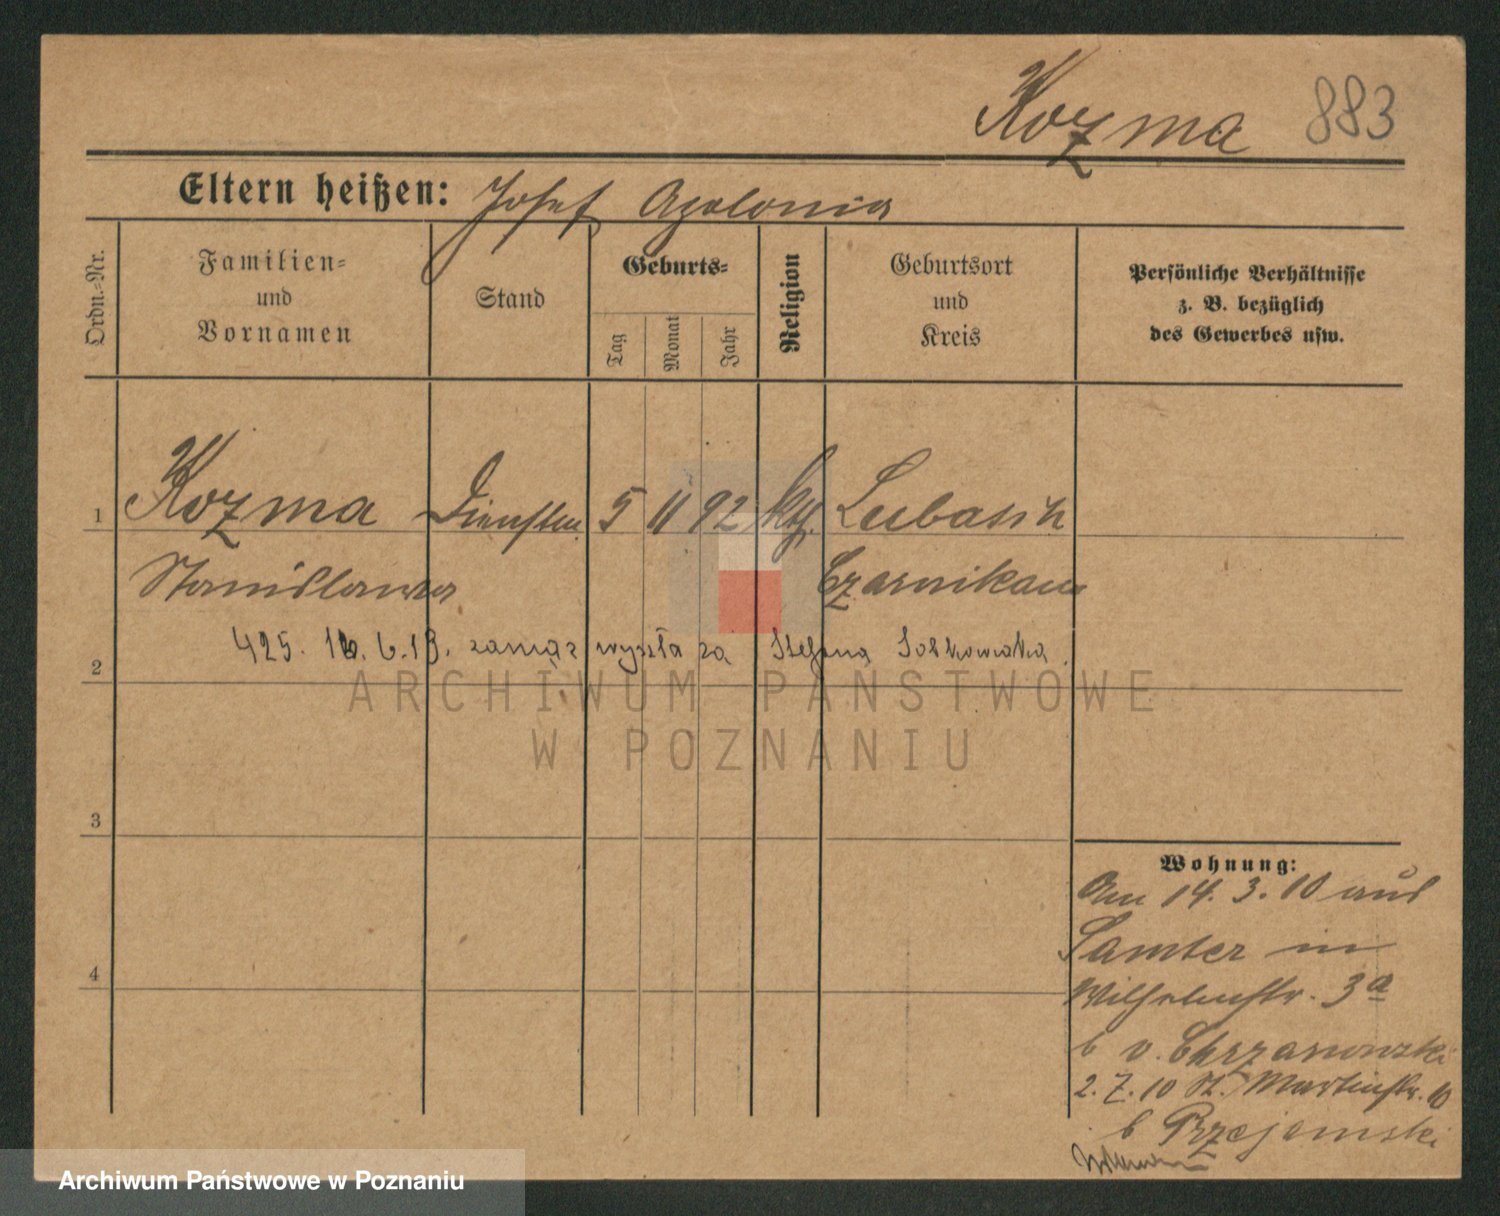 Kozma 883
Eltern heißen: Josef Apolonia
Ordn.-Nr.
Familien-
und
Vornamen
Stand
Geburts-
Tag
Monat
Jahr
Religion
Geburtsort
und
Kreis
Persönliche Verhältnisse
z. B. bezüglich
des Gewerbes usw.
1 Kozma 5 11 92 kth. Lubasch
Stanislawa Czarnikau
425. 6.19. zamąż wyszła za Stefana
2
ARCHIWUM PAŃSTWOWE
W POZNANIU
3
Wohnung:
Am 14. 3. 10 aus
Samter in
4
Wilhelmstr. 3a
b v. Chrzanowski
2. 7. 10 St. Martinstr. 10
b Przejemski
Archiwum Państwowe w Poznaniu